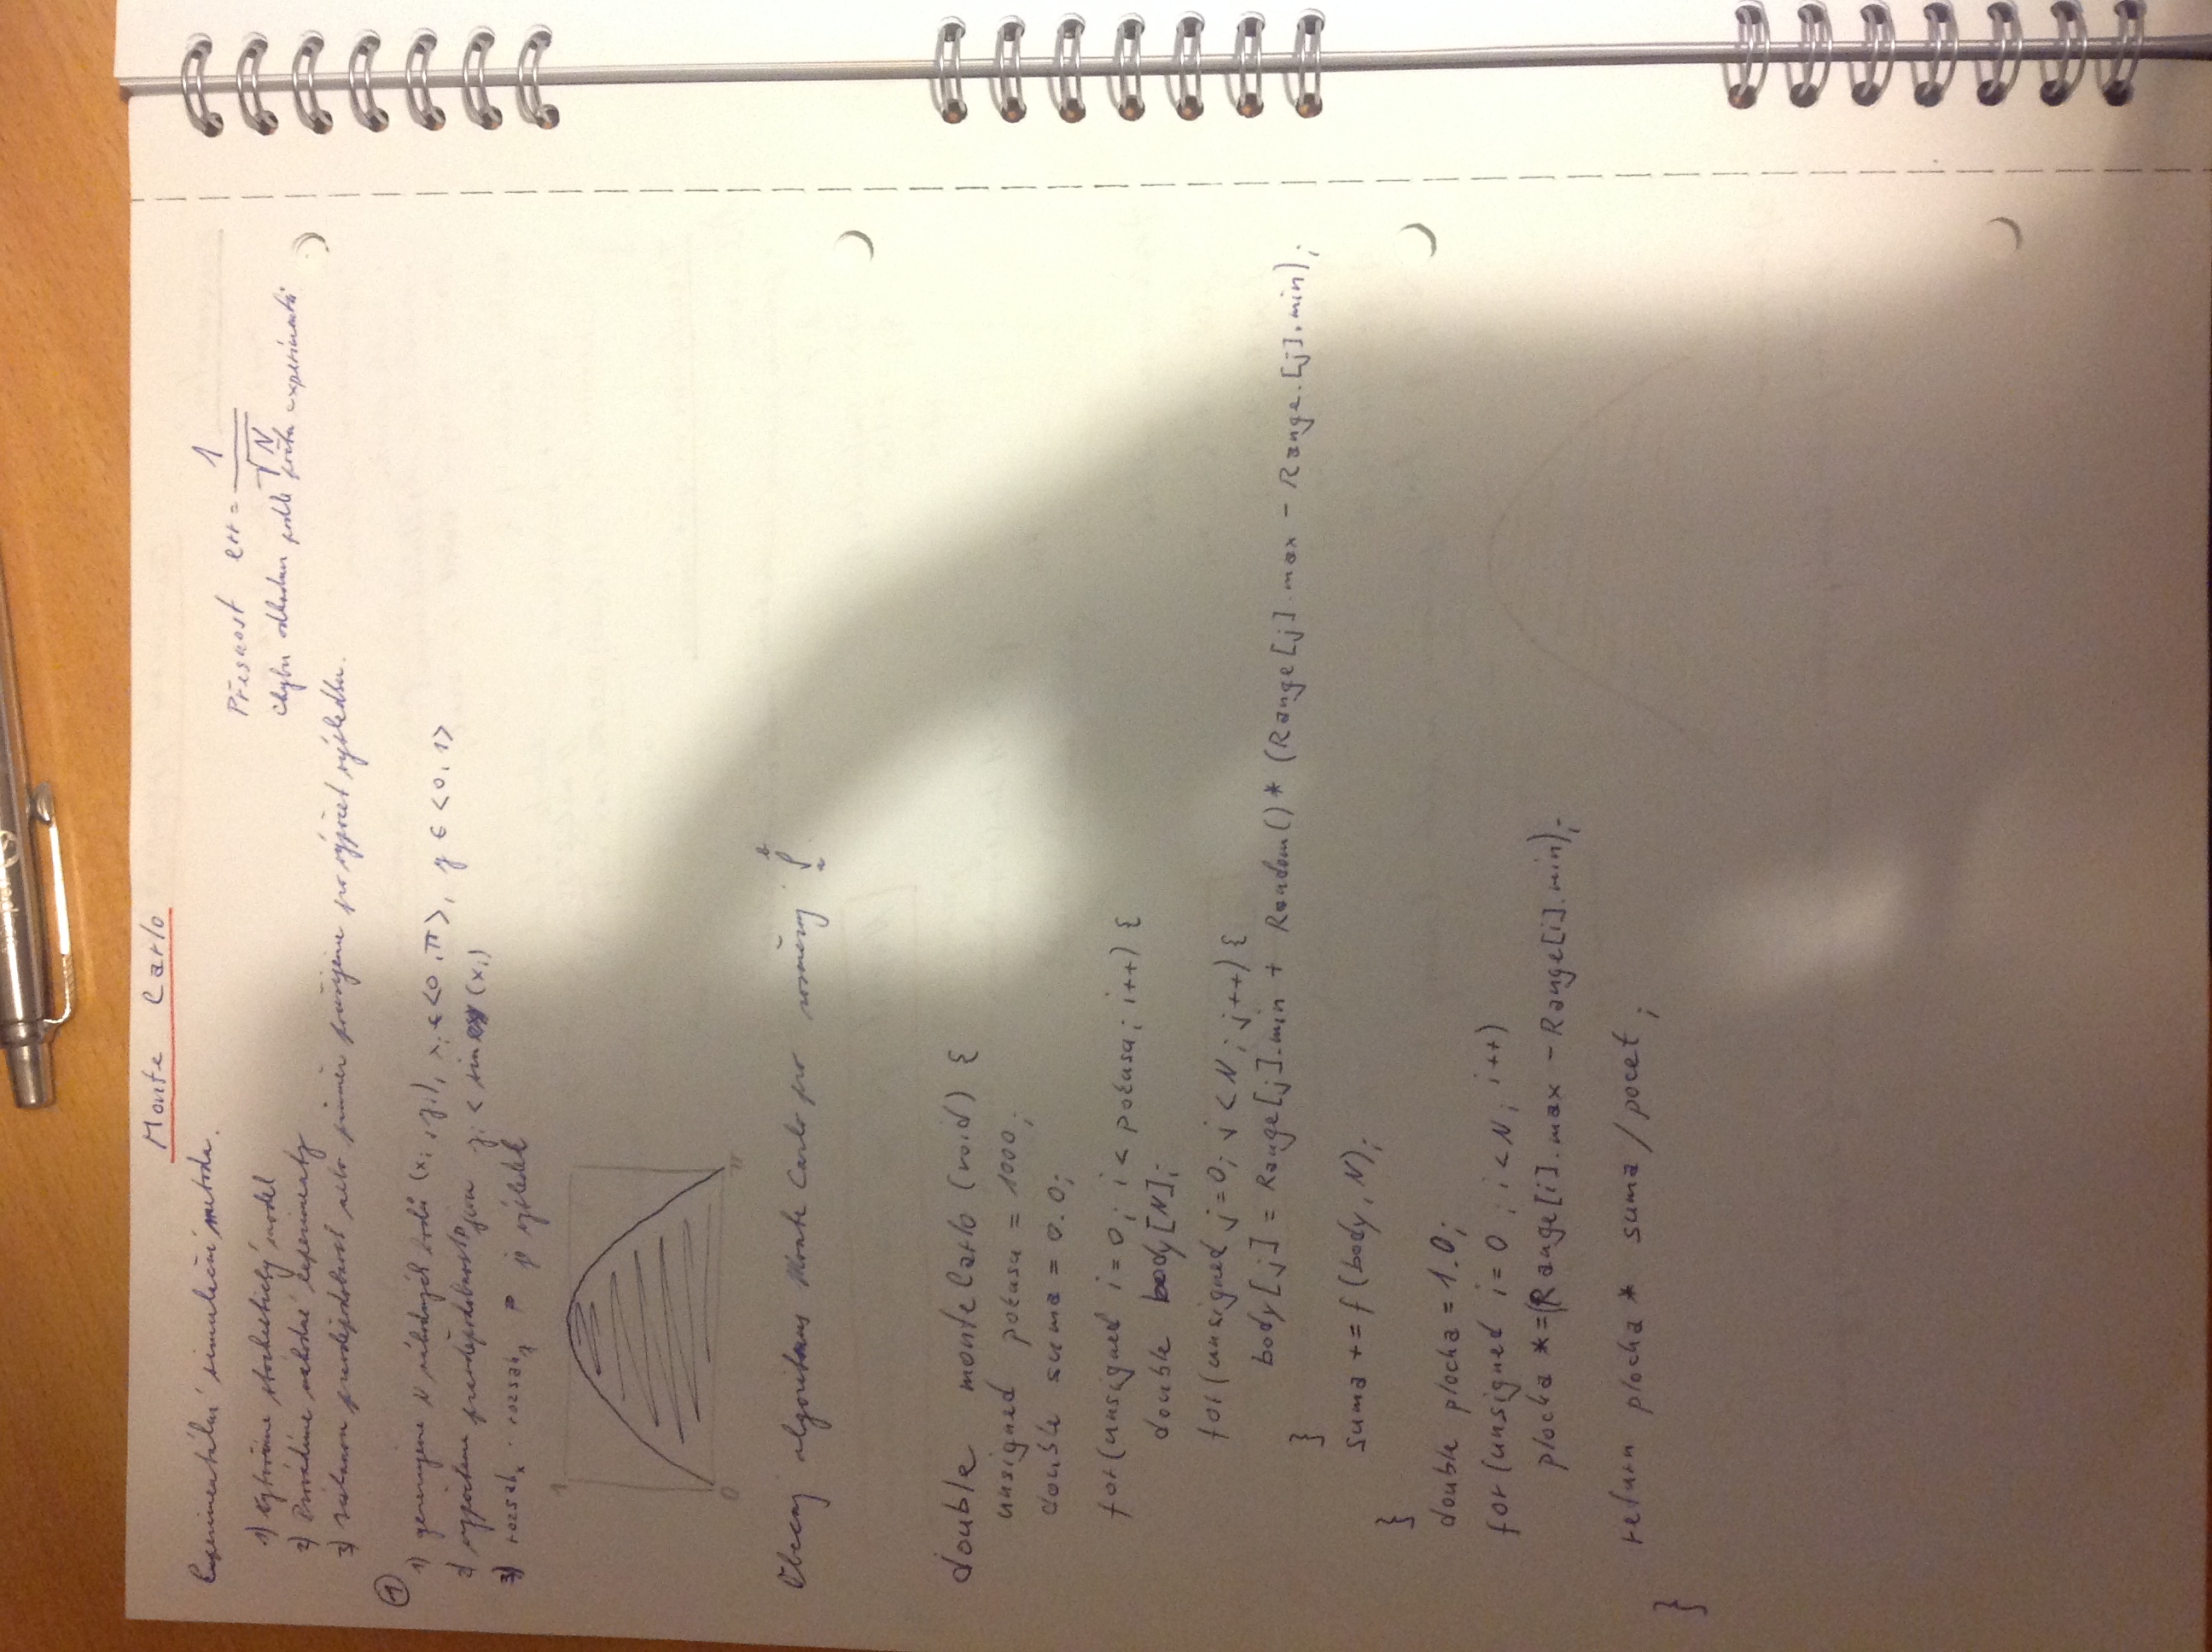 Monte Carlo
Experimentální simulační metoda.
Přesnost err = 1/√N
chybu odhadnu podle počtu experimentů
1) Vytvoříme stochastický model
2) Provádíme náhodné experimenty
3) získanou pravděpodobnost nebo průměr použijeme pro výpočet výsledku.
①
1) generujeme N náhodných bodů (xi, yi), xi ∈ <0, π>, y ∈ <0, 1>
2) vypočteme pravděpodobnost P yi < sin (xi)
3) rozsahx · rozsahy P je výsledek
1
0 π
Obecný algoritmus Monte Carlo pro rozměrný ∫ b a
double monteCarlo (void) {
unsigned pokusu = 1000;
double suma = 0.0;
for(unsigned i = 0; i < pokusu; i++) {
double body[N];
for(unsigned j=0; j < N; j++) {
body[j] = Range[j].min + Random() * (Range[j].max - Range.[j].min);
}
suma += f(body, N);
}
double plocha = 1.0;
for(unsigned i = 0; i < N; i++)
plocha *= (Range[i].max - Range[i].min);
return plocha * suma / pocet;
}